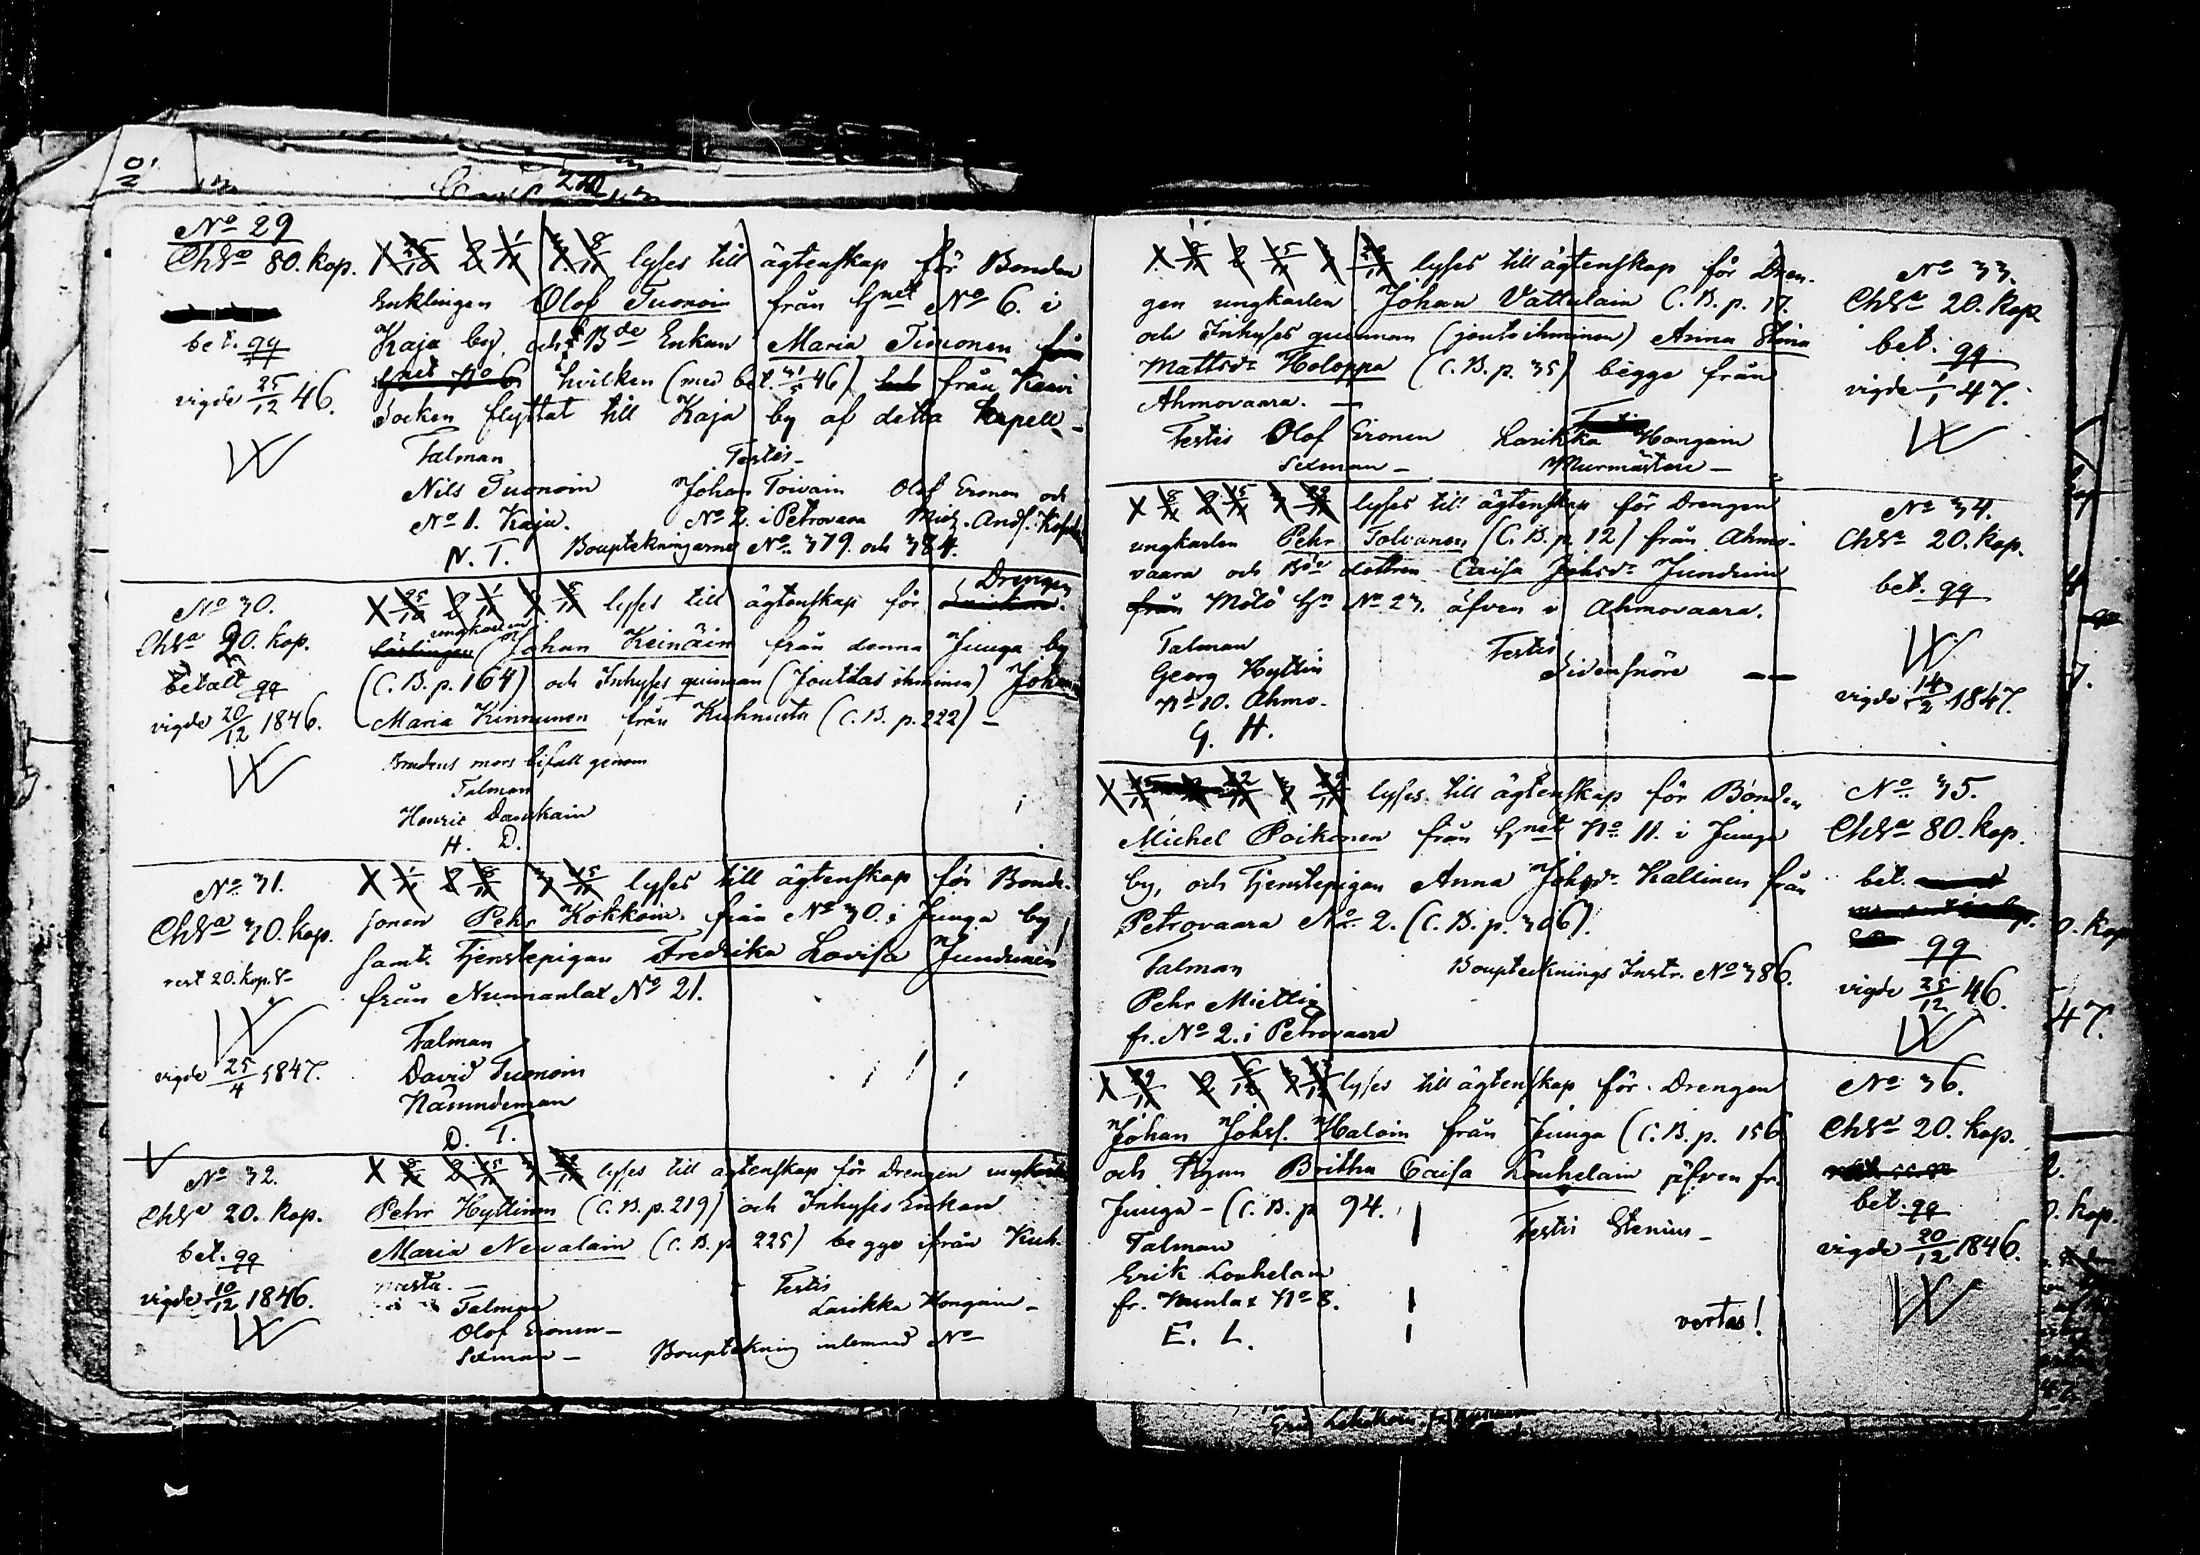 No 29
Chka 80. kop.
bet. qq
vigde 25/12 46.
1 25/10 2 1/11 3 8/11 lyses till ägtenskap för Bonden
Enklingen Olof Tuonoin från Hnet No 6. i
Kaja by och Bde Enkan Maria Timonen från
Hnet No 6 hvilken (med bet. 31/5 46) från Kaavi
Socken flyttat till Kaja by af detta kapell
Talman Testis
Nils Tuonoin Johan Toivain Olof Eronen och
No 1. Kaja. No 2. i Petrovara
N. T. Bouptekningarne No 379. och 384.
No 30.
Chka 20. kop.
betalt qq
vigde 20/12 1846.
1 25/10 2 1/11 3 8/11 lyses till ägtenskap för Drengen
ungkarlen Johan Keinäin från denna Juuga by
(C. B. p. 164) och Inhyses quinnan (Joutilas ihminen) Johan
Maria Kinnunen från Kuhnusta (C. B. p. 222) –
Brudens mors bifall genom
Talman
Henric Danskain
H. D.
No 31.
Chka 30. kop.
rest 20. kop. S
vigde 25/4 1847.
1 1/11 2 8/11 3 15/11 lyses till ägtenskap för Bonde-
sonen Pehr Kokkoin från No 30. i Juuga by
samt Tjenstepigan Fredrika Lovisa Jundinen
från Nunnanlax No 21.
Talman
David Tuonoin
Nämndeman
D. T.
No 32.
Chka 20. kop.
bet. qq
vigde 10/12 1846.
1 8/11 2 15/11 3 22/11 lyses till ägtenskap för Drengen ungkarlen
Pehr Hyttinen (C. B. p. 219) och Inhyses Enkan
Maria Nevalain (C. B. p 225) begge ifrån Kuh-
nusta. –
Talman Testis
Olof Eronen – Lasikka Hongain –
Sexman – Bouptekning inlemnad No
1 8/11 2 15/11 3 22/11 lyses till ägtenskap för Dren-
gen ungkarlen Johan Vattulain C. B. p. 17.
och Inhyses quinnan (joutiihminen) Anna Stina
Mattsdr Holoppa (C. B. p. 35) bägge från
Ahmovaara. –
Testis Olof Eronen Lasikka Hongain
Sexman – Murmästare –
No 33.
Chka 20. kop
bet. qq
vigde 1/1 47.
1 8/11 2 15/11 3 22/11 lyses till ägtenskap för Drengen
ungkarlen Pehr Tolvanen (C. B. p. 12) från Ahmo-
vaara och Bde dottren Caisa Johsdr Jundinen
från Mötö Hn No 23. äfven i Ahmovaara.
Talman Testis
Georg Hyttin Sidensnöre –
No 10. Ahmo.
G. H.
No 34.
Chka 20. kop.
bet. qq
vigde 14/2 1847.
1 15/11 2 22/11 3 29/11 lyses till ägtenskap för Bonden
Michel Poikonen från Hnet No 11. i Juuga
by, och Tjenstepigan Anna Johsdr Kallinen från
Petrovaara No 2. (C. B. p. 306).
Talman Bouptecknings Instr. No 386.
Pehr Miettin
fr. No 2. i Petrovaara
No 35.
Chka 80. kop.
bet.
qq
vigde 25/12 46.
1 29/11 2 6/12 3 13/12 lyses till ägtenskap för Drengen
Johan Johss. Haloin från Juuga (C. B. p. 156
och Pigan Britha Caisa Louhelain äfven fr.
Juuga – (C. B. p 94.
Talman Testis Stenius –
Erik Louhelain
fr. Nunlax No 8.
E. L.
vertas!
No 36.
Chka 20. kop.
bet. qq
vigde 20/12 1846.